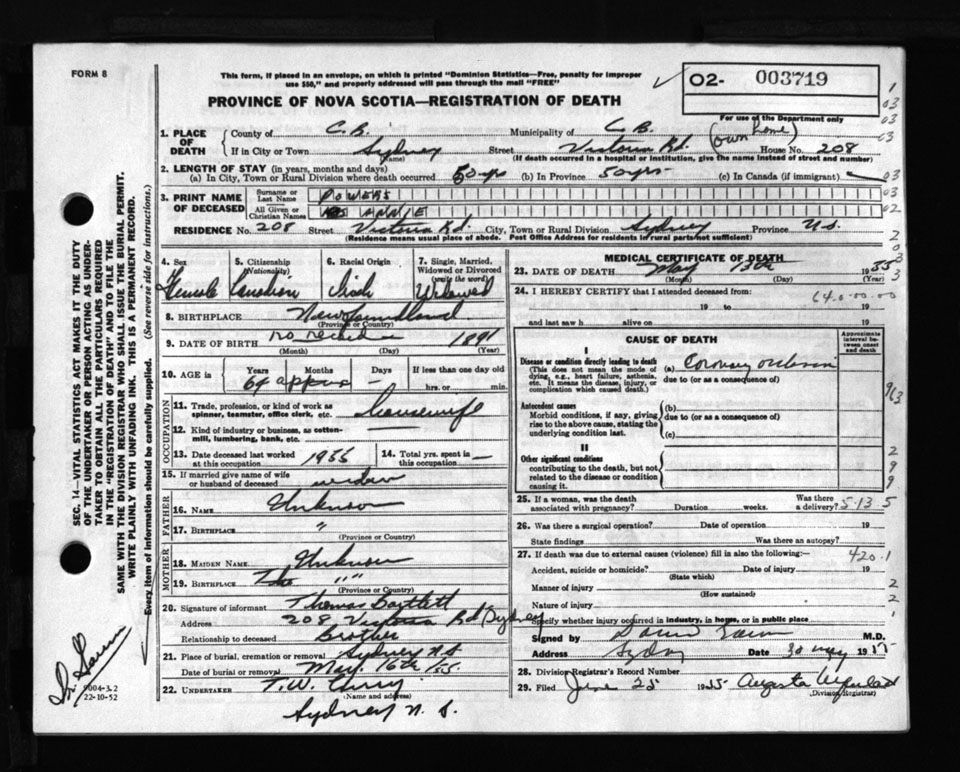 FORM 8
This form, if placed in an envelope, on which is printed "Dominion Statistics—Free, penalty for improper
use $50," and properly addressed will pass through the mail "FREE"
O2- 003719
PROVINCE OF NOVA SCOTIA—REGISTRATION OF DEATH
For use of the Department only
1. PLACE OF DEATH
County of C.B. Municipality of C.B. (own home)
If in City or Town Sydney Street Victoria Rd. House No. 208
(Name) (If death occurred in a hospital or institution, give the name instead of street and number)
2. LENGTH OF STAY (in years, months and days)
(a) In City, Town or Rural Division where death occurred 50 yrs (b) In Province 50 yrs (c) In Canada (if immigrant)
3. PRINT NAME OF DECEASED
Surname or Last Name POWERS
All Given or Christian Names ANNIE
RESIDENCE No. 208 Street Victoria Rd. City, Town or Rural Division Sydney Province N.S.
(Residence means usual place of abode. Post Office Address for residents in rural parts not sufficient)
4. Sex Female
5. Citizenship (Nationality) Canadian
6. Racial Origin Irish
7. Single, Married, Widowed or Divorced (write the word) Widowed
8. BIRTHPLACE Newfoundland
(Province or Country)
9. DATE OF BIRTH no record 1891
(Month) (Day) (Year)
10. AGE is Years Months Days If less than one day old
64 approx — hrs. or min.
OCCUPATION
11. Trade, profession, or kind of work as spinner, teamster, office clerk, etc. housewife
12. Kind of industry or business, as cotton-mill, lumbering, bank, etc.
13. Date deceased last worked at this occupation 1955 14. Total yrs. spent in this occupation —
15. If married give name of wife or husband of deceased widow
FATHER
16. NAME Unknown
17. BIRTHPLACE "
(Province or Country)
MOTHER
18. MAIDEN NAME Unknown
19. BIRTHPLACE " "
(Province or Country)
20. Signature of informant Thomas Bartlett
Address 208 Victoria Rd Sydney
Relationship to deceased brother
21. Place of burial, cremation or removal Sydney N.S
Date of burial or removal May. 16th/55.
22. UNDERTAKER T.W. Curry
(Name and address)
Sydney N.S.
MEDICAL CERTIFICATE OF DEATH
23. DATE OF DEATH May 13th 1955
(Month) (Day)
24. I HEREBY CERTIFY that I attended deceased from:
19 to 19
and last saw h alive on 19
CAUSE OF DEATH
Approximate interval between onset and death
I
Disease or condition directly leading to death
(This does not mean the mode of dying, e.g., heart failure, asthenia, etc. It means the disease, injury, or complication which caused death.)
(a) Coronary occlusion
due to (or as a consequence of)
Antecedent causes
Morbid conditions, if any, giving rise to the above cause, stating the underlying condition last.
(b)
due to (or as a consequence of)
(c)
II
Other significant conditions
contributing to the death, but not related to the disease or condition causing it.
25. If a woman, was the death associated with pregnancy? Duration weeks. Was there a delivery? 5-13-5
26. Was there a surgical operation? Date of operation 19
State findings Was there an autopsy?
27. If death was due to external causes (violence) fill in also the following:— 420.1
Accident, suicide or homicide? Date of injury 19
(State which)
Manner of injury
(How sustained)
Nature of injury
Specify whether injury occurred in industry, in home, or in public place
Signed by M.D.
Address Sydney Date 30 May 1955
28. Division Registrar's Record Number
29. Filed June 25 1955 Augusta
(Division Registrar)
SEC. 14—VITAL STATISTICS ACT MAKES IT THE DUTY
OF THE UNDERTAKER OR PERSON ACTING AS UNDER-
TAKER TO OBTAIN ALL THE PARTICULARS REQUIRED
IN THE "REGISTRATION OF DEATH" AND TO FILE THE
SAME WITH THE DIVISION REGISTRAR WHO SHALL ISSUE THE BURIAL PERMIT.
WRITE PLAINLY WITH UNFADING INK. THIS IS A PERMANENT RECORD.
Every item of information should be carefully supplied. (See reverse side for instructions.)
9004-3.2
22-10-52